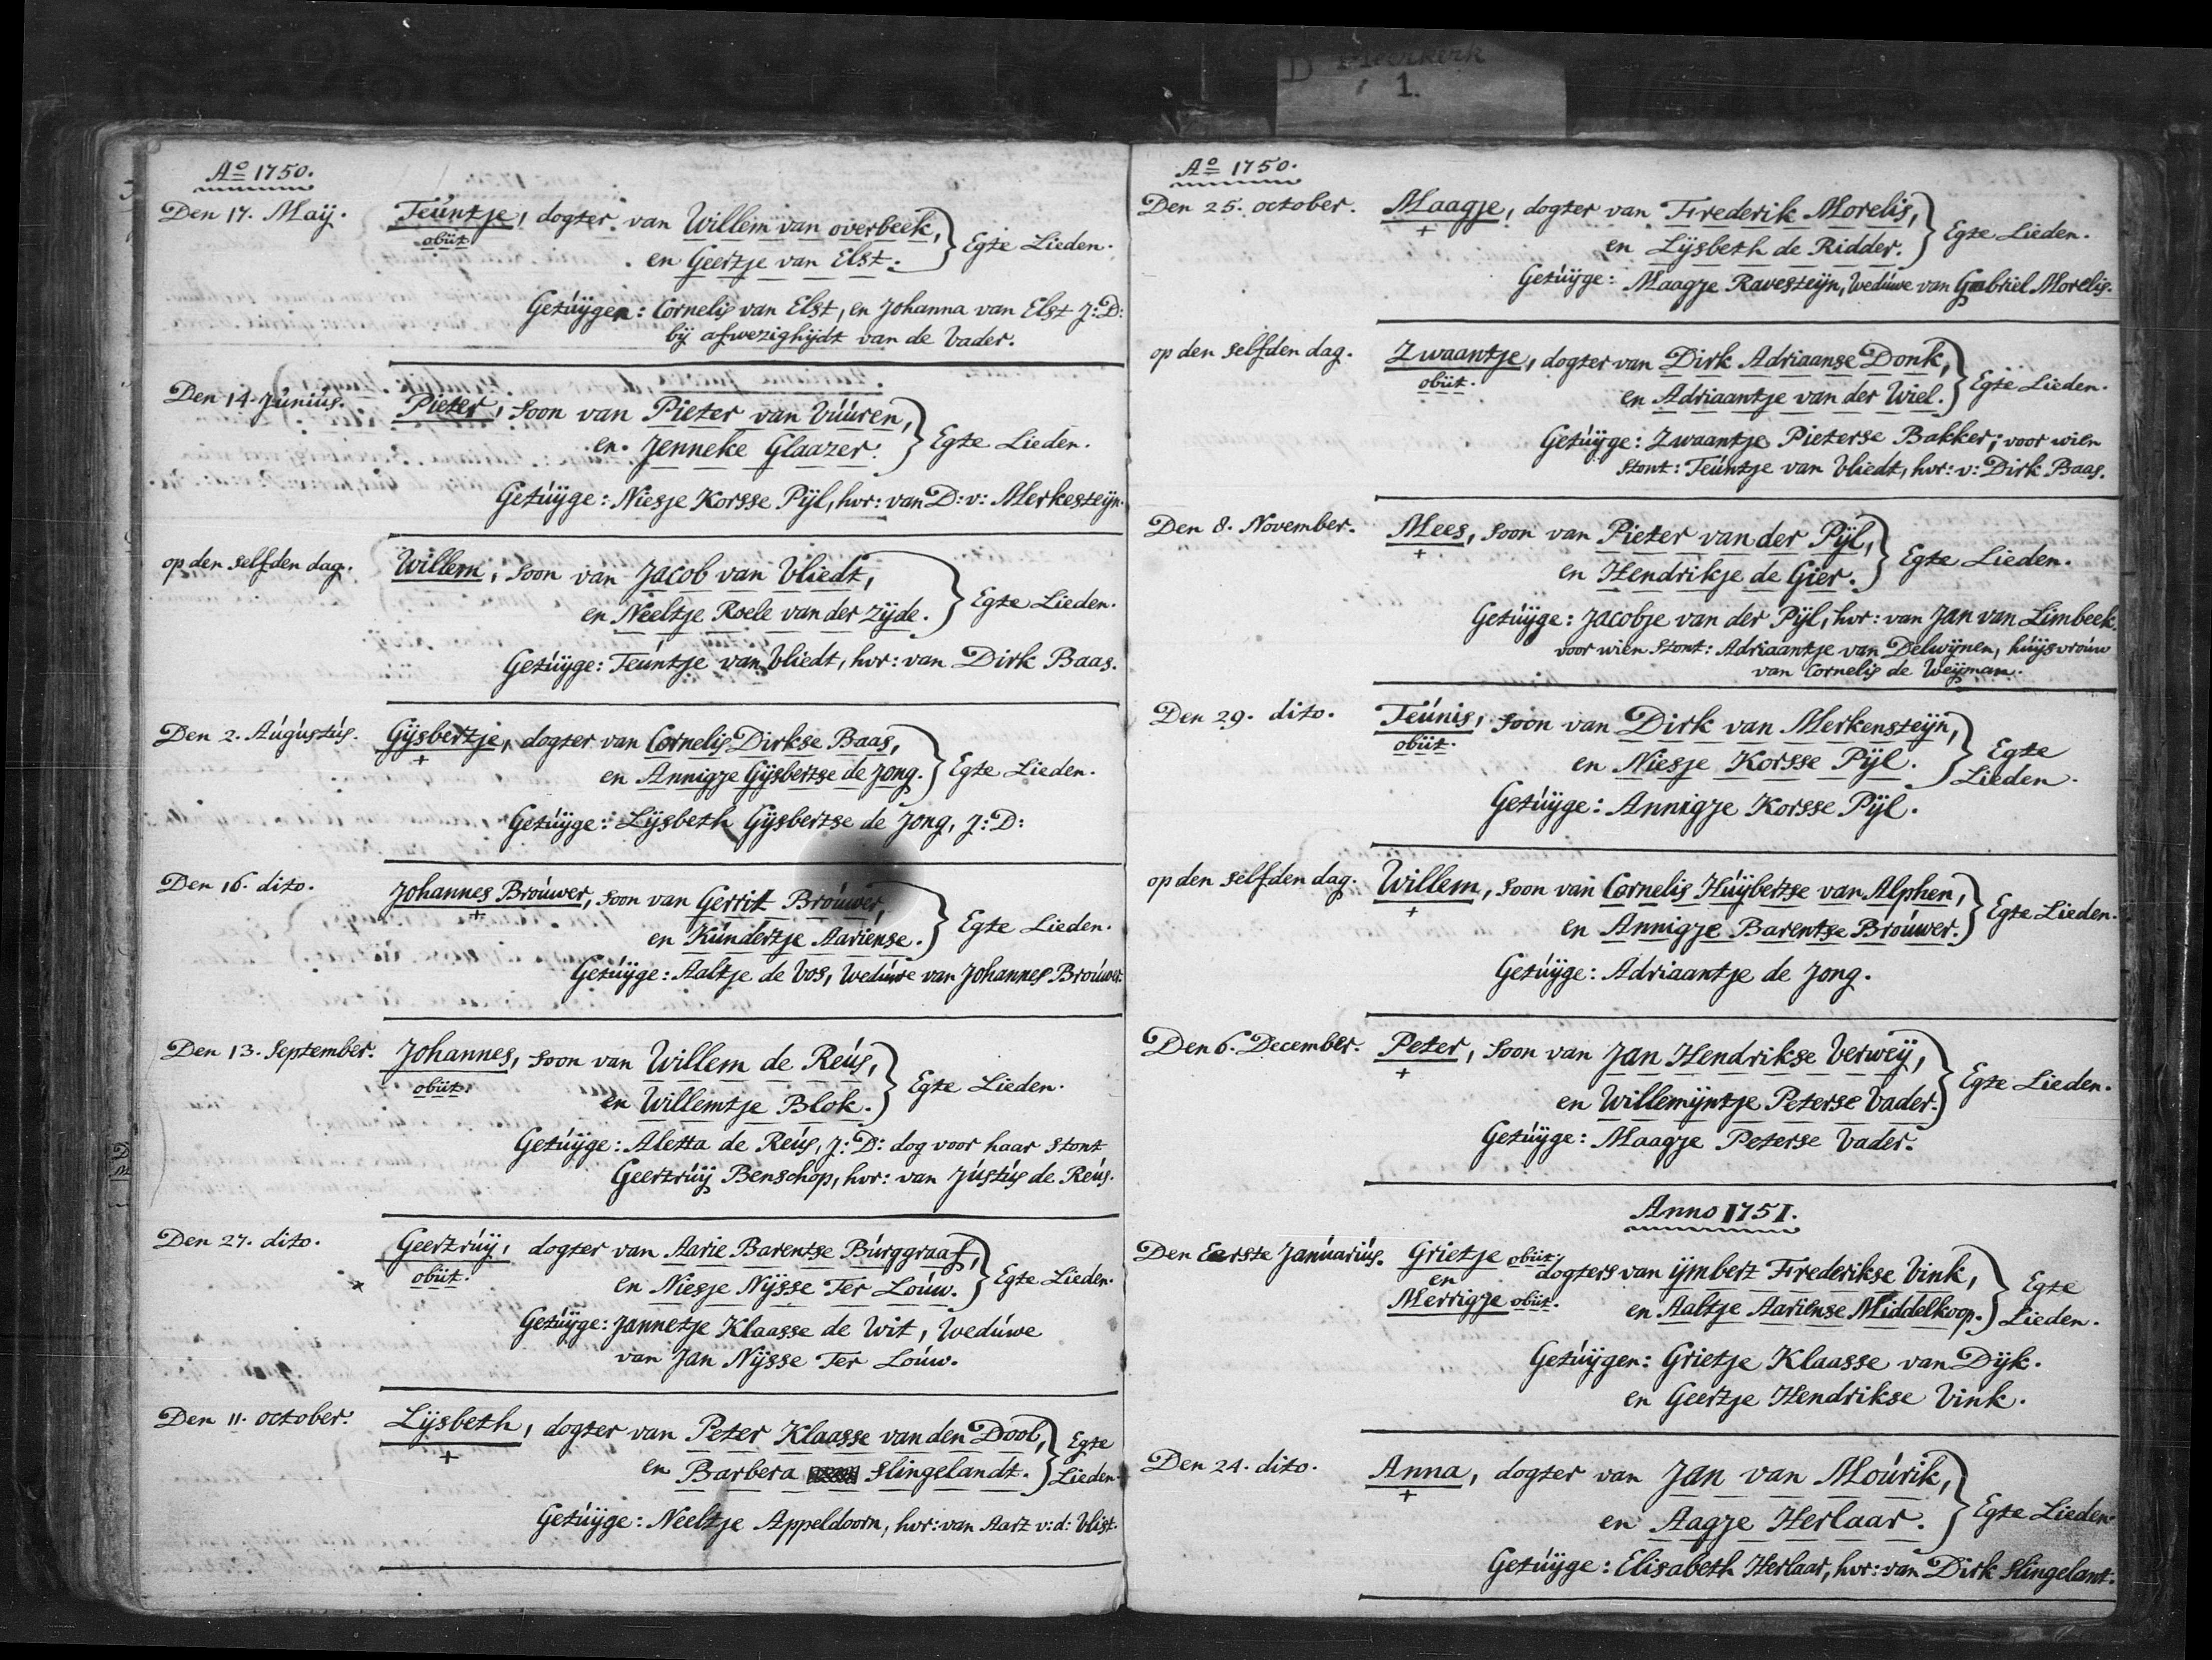 D Meerkerk
1.
Ao 1750.
Den 17. Maÿ. Teúntje, dogter van Willem van overbeek,
obiit en Geertje van Elst. Egte Lieden.
Getúÿgen: Cornelis van Elst, en Johanna van Elst J:D:
bÿ afwezighÿdt van de Vader.
Den 14. Júniús. Pieter, soon van Pieter van Vúúren,
en Jenneke Glaazer. Egte Lieden.
Getúÿge: Niesje Korsse Pÿl, hvr: van D: v: Merkesteÿn.
op den selfden dag. Willem, soon van Jacob van Vliedt,
en Neeltje Roele van der Zÿde. Egte Lieden.
Getúÿge: Teúntje van Vliedt, hvr: van Dirk Baas.
Den 2. Aúgústús. Gÿsbertje, dogter van Cornelis Dirkse Baas,
+ en Annigje Gÿsbertse de Jong. Egte Lieden.
Getúÿge: Lÿsbeth Gÿsbertse de Jong, J:D:
Den 16. dito. Johannes Broúwer, soon van Gerrit Broúwer,
+ en Kúndertje Aariense. Egte Lieden.
Getúÿge: Aaltje de Vos, Wedúwe van Johannes Broúwer.
Den 13. September. Johannes, soon van Willem de Reús,
obiit. en Willemtje Blok. Egte Lieden.
Getúÿge: Aletta de Reús, J:D: dog voor haar stont
Geertrúÿ Benschop, hvr: van Jústús de Reús.
Den 27. dito. Geertrúÿ, dogter van Aarie Barentse Búrggraaf,
x obiit. en Niesje Nÿsse Ter Loúw. Egte Lieden.
Getúÿge: Jannetje Klaasse de Wit, Wedúwe
van Jan Nÿsse Ter Loúw.
Den 11. october. Lÿsbeth, dogter van Peter Klaasse van den Dool, Egte
+ en Barbera Slingelandt. Lieden.
Getúÿge: Neeltje Appeldoorn, hvr: van Aart v:d: Vlist.
Ao 1750.
Den 25. october. Maagje, dogter van Frederik Morelis,
+ en Lÿsbeth de Ridder. Egte Lieden.
Getúÿge: Maagje Ravesteÿn, Wedúwe van Gabriel Morelis.
op den selfden dag. Zwaantje, dogter van Dirk Adriaanse Donk,
obiit. en Adriaantje van der Wiel. Egte Lieden.
Getúÿge: Zwaantje Pieterse Bakker; voor wien
stont: Teúntje van Vliedt, hvr: v: Dirk Baas.
Den 8. November. Mees, soon van Pieter van der Pÿl,
+ en Hendrikje de Gier. Egte Lieden.
Getúÿge: Jacobje van der Pÿl, hvr: van Jan van Limbeek.
voor wien stont: Adriaantje van Delwÿnen, húÿsvroúw
van Cornelis de Weÿman.
Den 29. dito. Teúnis, soon van Dirk van Merkensteÿn,
obiit. en Niesje Korsse Pÿl. Egte
Lieden.
Getúÿge: Annigje Korsse Pÿl.
op den selfden dag. Willem, soon van Cornelis Húÿbertse van Alphen,
+ en Annigje Barentse Broúwer. Egte Lieden.
Getúÿge: Adriaantje de Jong.
Den 6. December. Peter, soon van Jan Hendrikse Verweÿ,
+ en Willemÿntje Peterse Vader. Egte Lieden.
Getúÿge: Maagje Peterse Vader.
Anno 1751.
Den Eerste Janúariús. Grietje obiit.
en dogters van Ymbert Frederikse Vink, Egte
Merrigje obiit. en Aaltje Aariense Middelkoop. Lieden.
Getúÿgen: Grietje Klaasse van Dÿk.
en Geertje Hendrikse Vink.
Den 24. dito. Anna, dogter van Jan van Moúrik,
+ en Aagje Herlaar. Egte Lieden.
Getúÿge: Elisabeth Herlaar, hvr: van Dirk Slingelant.